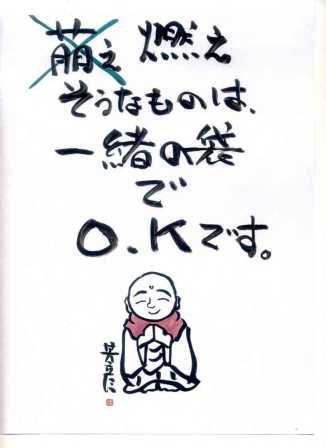 萌え 燃え
そうなものは、
一緒の袋
で
O.Kです。